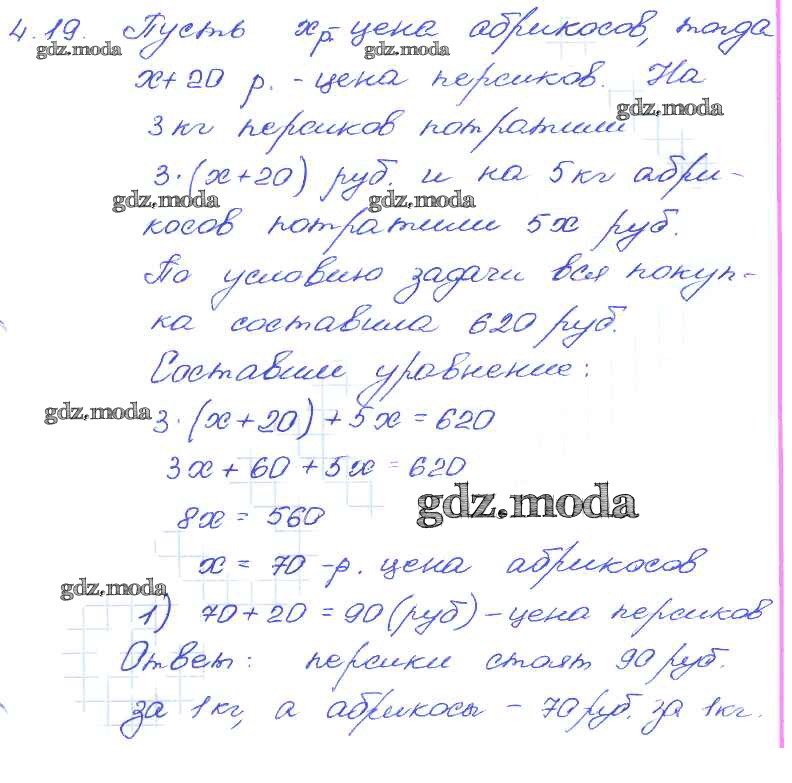 4.19. Пусть x р. - цена абрикосов, тогда
gdz.moda gdz.moda
x+20 р. - цена персиков. На
gdz.moda
3кг персиков потратили
3·(x+20) руб. и на 5кг абри-
gdz.moda gdz.moda
косов потратили 5x руб.
По условию задачи вся покуп-
ка составила 620 руб.
Составим уравнение:
gdz.moda
3·(x+20)+5x=620
3x+60+5x=620
gdz.moda
8x=560
x=70 -р. цена абрикосов
gdz.moda
1) 70+20=90(руб)-цена персиков
Ответ: персики стоят 90 руб.
за 1кг, а абрикосы - 70 руб. за 1кг.